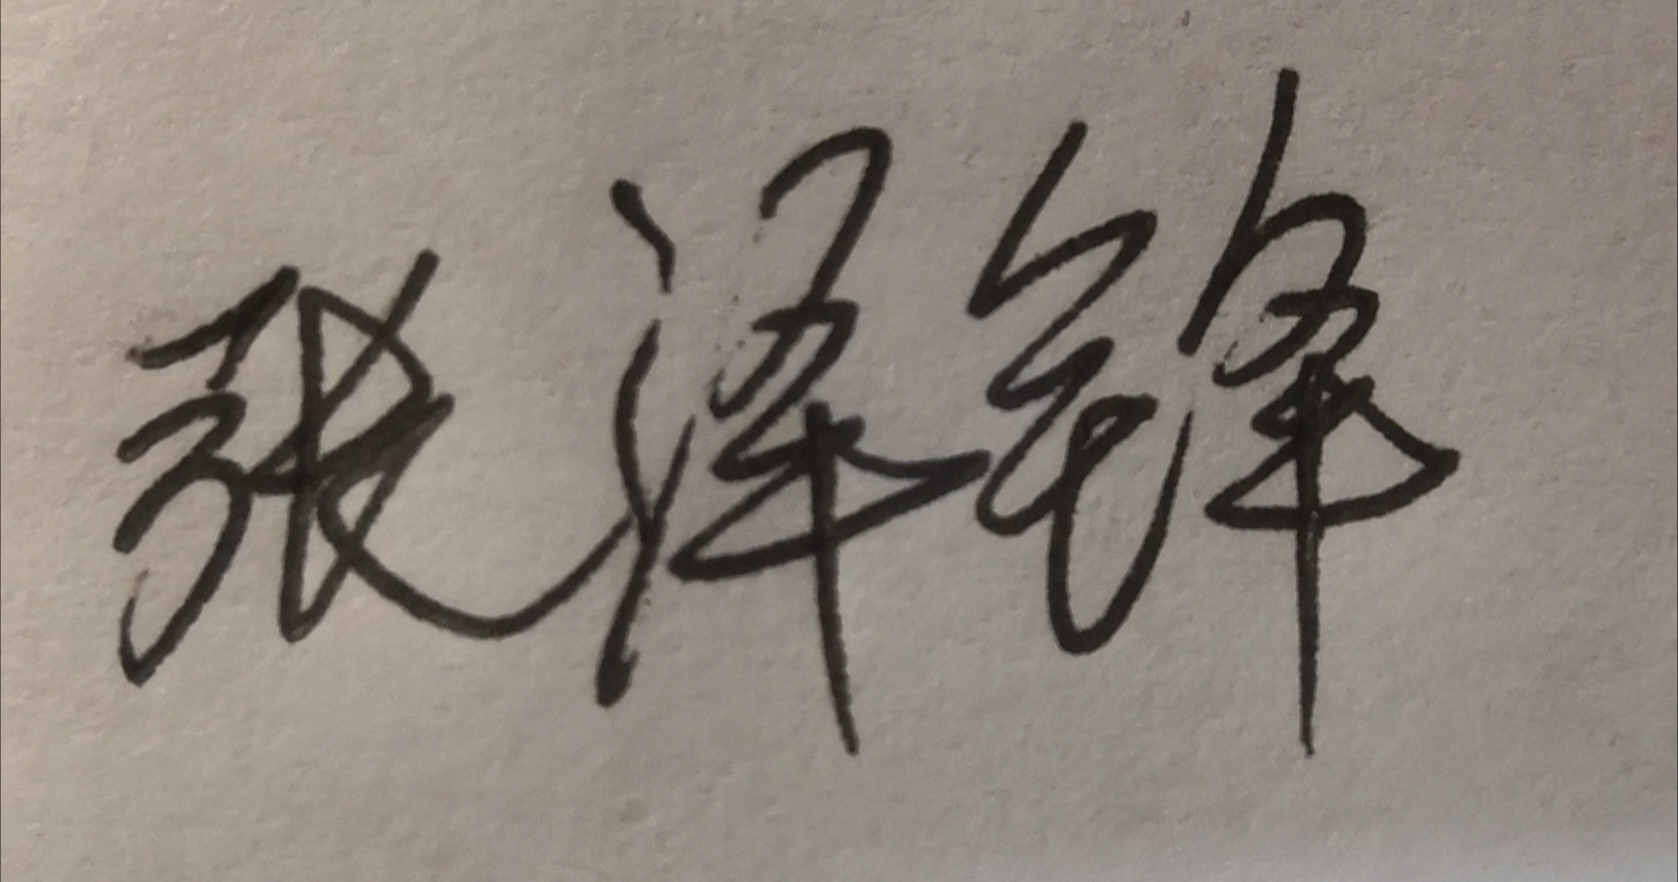 张泽锋